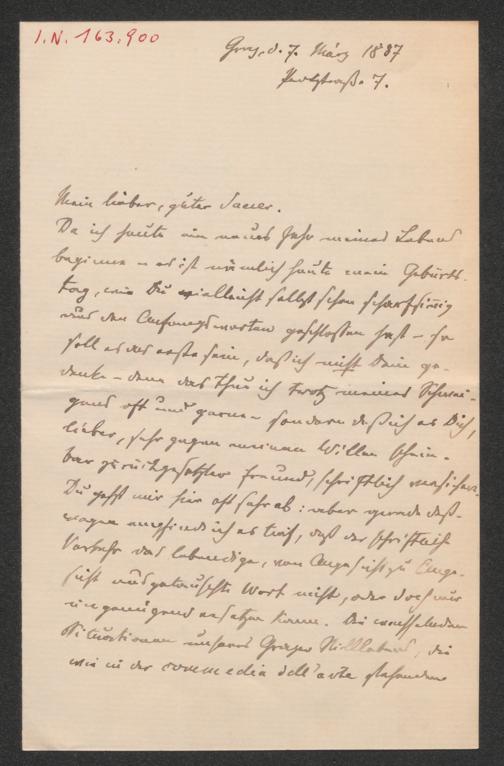 I.N. 163.900
Graz, d. 7. März 1887
Parkstraße 7.
Mein lieber, guter Sauer.
Da ich heute ein neues Jahr meines Lebens
beginne – es ist nämlich heute mein Geburts-
tag, wie Du vielleicht selbst schon scharfsinnig
aus den Anfangsworten geschlossen hast – so
soll es das erste sein, daß ich nicht Dein ge-
denke – denn das thue ich trotz meines Schwei-
gens oft und gerne – sondern daß ich es Dich,
lieber, sehr gegen meinen Willen schein-
bar zurückgesetzter Freund, schriftlich versichere.
Du gehst mir hier oft sehr ab: aber gerade deß-
wegen empfinde ich es tief, daß der schriftliche
Verkehr das lebendige, von Angesicht zu Ange-
sicht ausgetauschte Wort nicht, oder doch nur
ungenügend ersetzen kann. Die wechselnden
Situationen unseres Grazer Stilllebens, die
wie in der commedia dell'arte stehenden